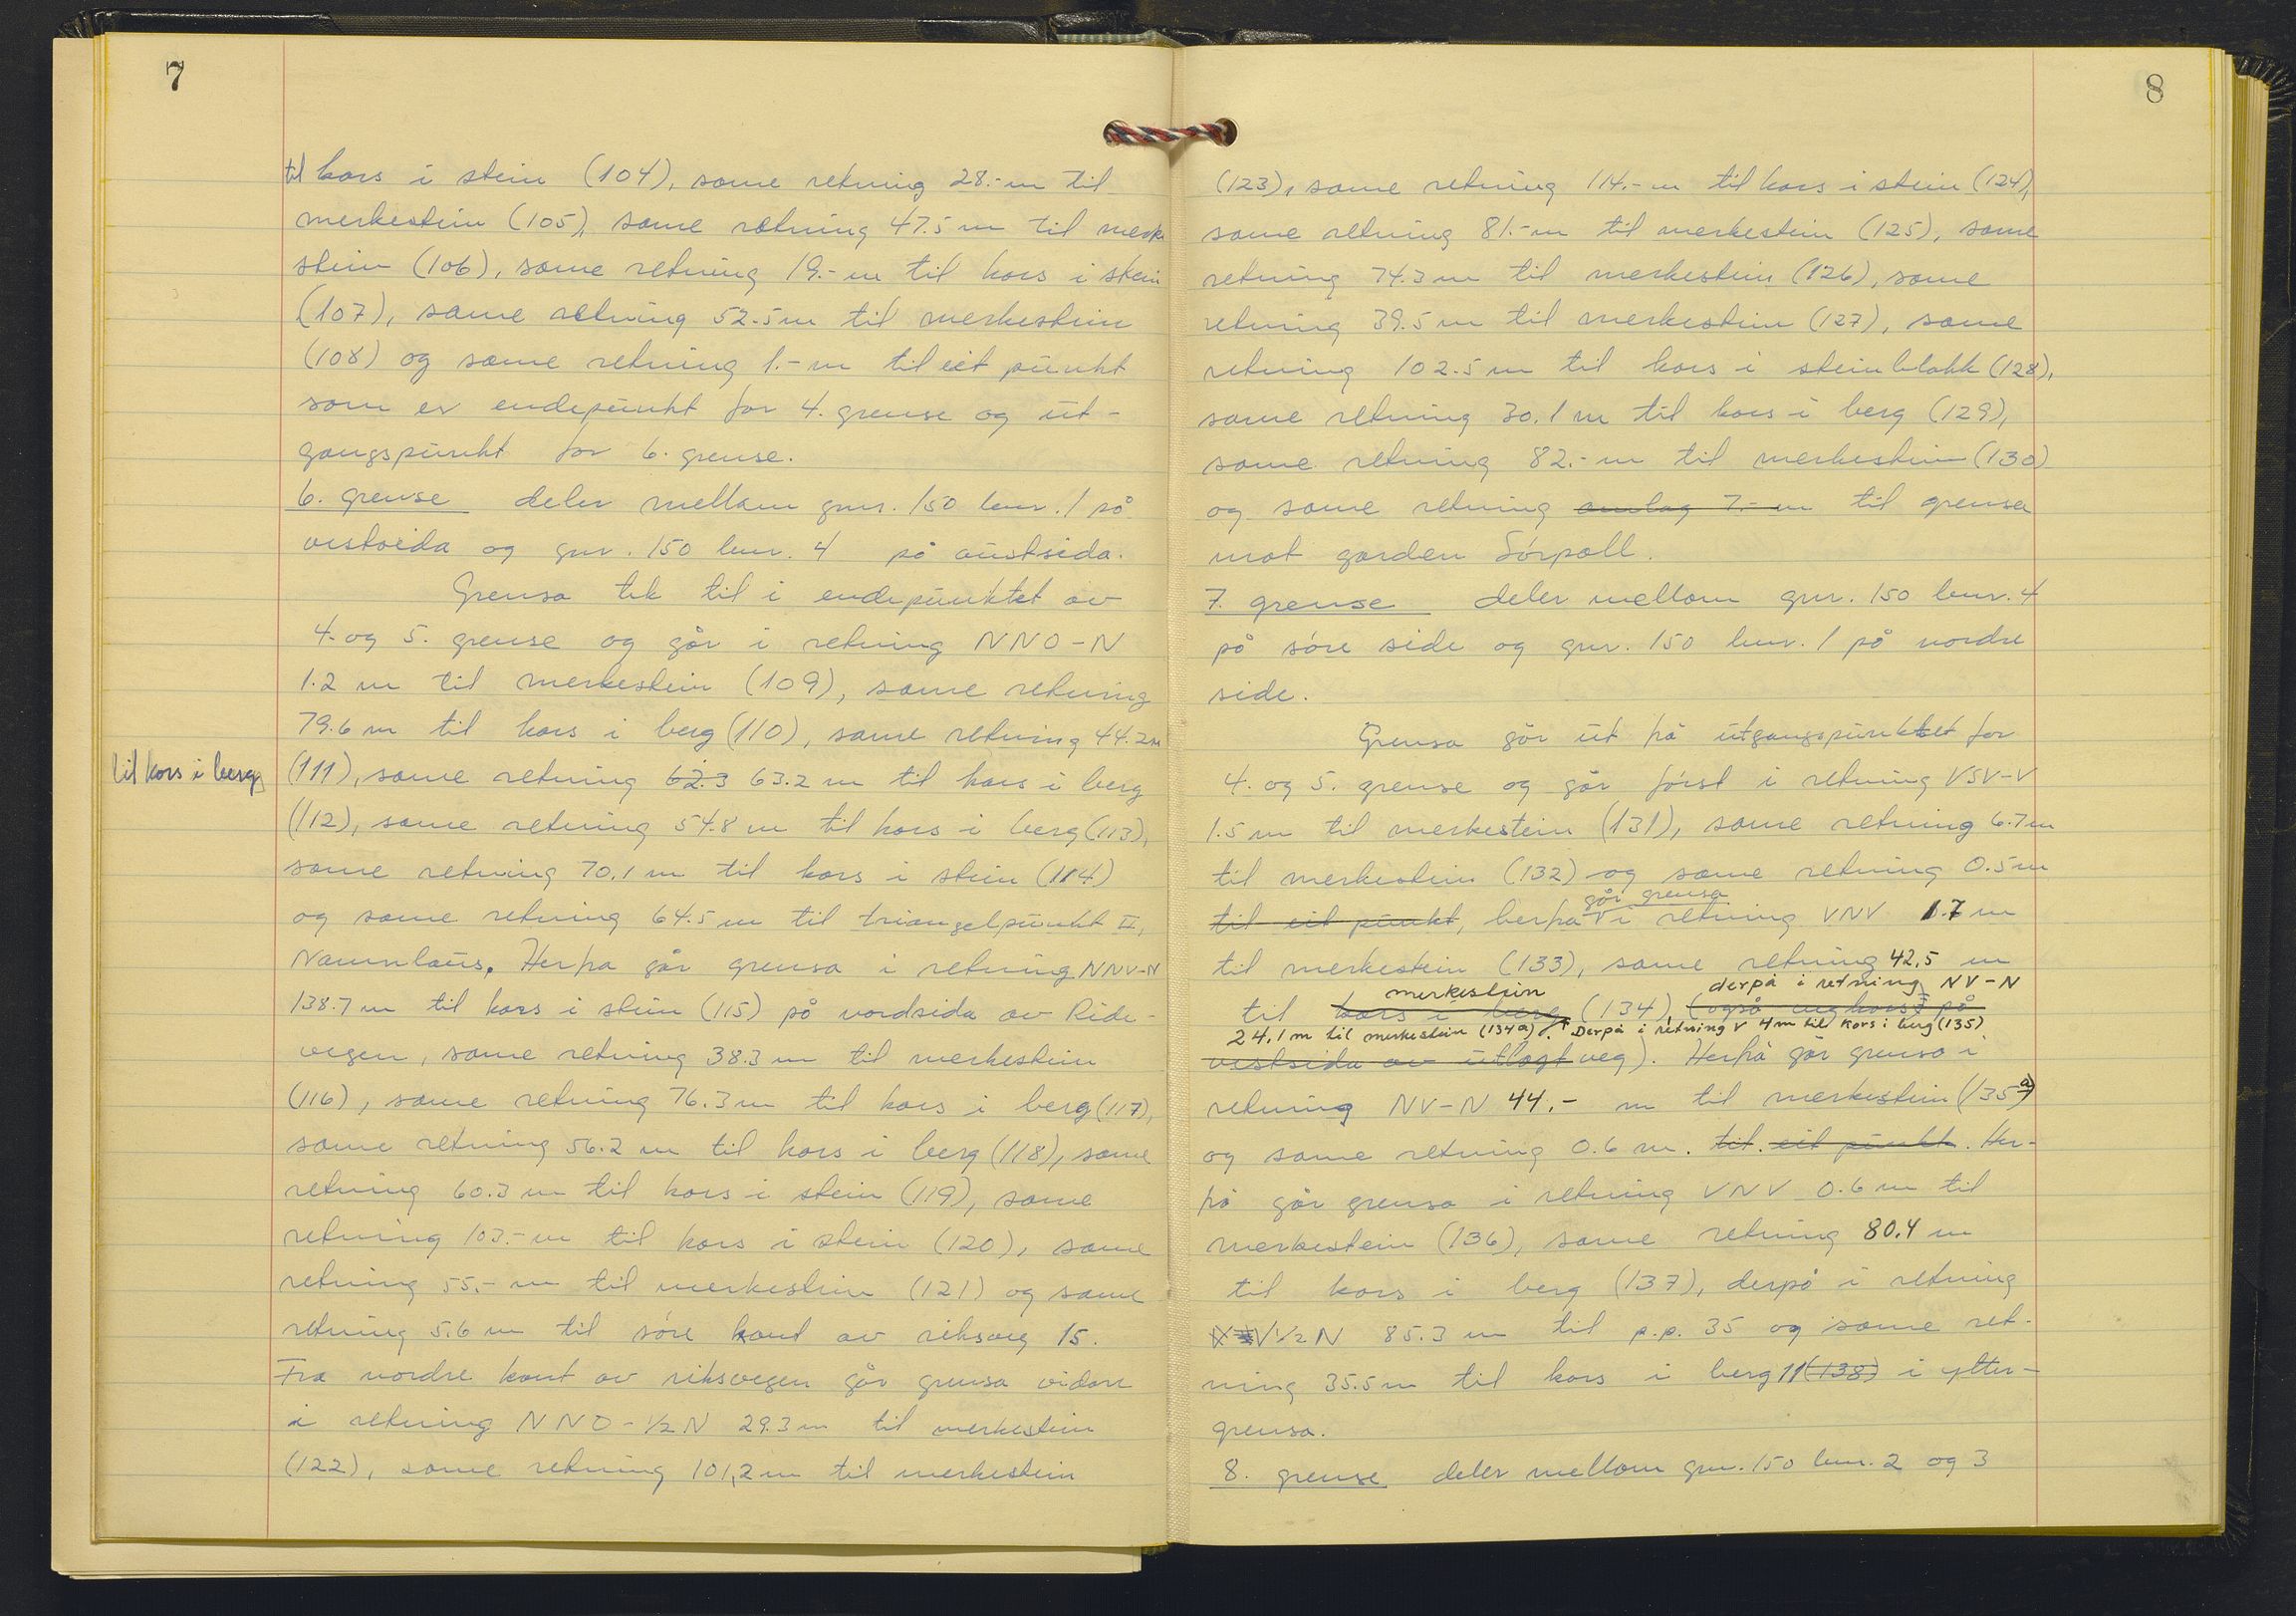 7
til kors i stein (104), same retning 28.- m til
merkestein (105), same retning 47.5 m til merke
stein (106), same retning 19.- m til kors i stein
(107), same retning 52.5 m til merkestein
(108) og same retning 1.- m til eit punkt
som er endepunkt for 4. grense og ut-
gangspunkt for 6. grense.
6. grense deler mellom gnr. 150 bnr. 1 på
vestsida og gnr. 150 bnr. 4 på austsida.
Grensa tek til i endepunktet av
4. og 5. grense og går i retning NNO-N
1.2 m til merkestein (109), same retning
79.6 m til kors i berg (110), same retning 44.2 m
til kors i berg
(111), same retning 62.3 63.2 m til kors i berg
(112), same retning 54.8 m til kors i berg (113),
same retning 70.1 m til kors i stein (114)
og same retning 64.5 m til triangelpunkt II,
Namnlaus. Herfra går grensa i retning NNV-N
138.7 m til kors i stein (115) på nordsida av Ride-
vegen, same retning 38.3 m til merkestein
(116), same retning 76.3 m til kors i berg (117),
same retning 56.2 m til kors i berg (118), same
retning 60.3 m til kors i stein (119), same
retning 103.- m til kors i stein (120), same
retning 55.- m til merkestein (121) og same
retning 5.6 m til søre kant av riksveg 15.
Fra nordre kant av riksvegen går grensa vidare
i retning NNO-½N 29.3 m til merkestein
(122), same retning 101,2 m til merkestein
8
(123), same retning 114.- m til kors i stein (124),
same retning 81.- m til merkestein (125), same
retning 74.3 m til merkestein (126), same
retning 39.5 m til merkestein (127), same
retning 102.5 m til kors i steinblokk (128),
same retning 30.1 m til kors i berg (129),
same retning 82.- m til merkestein (130)
og same retning omlag 7.- m til grensa
mot garden Sørpoll.
7. grense deler mellom gnr. 150 bnr. 4
på søre side og gnr. 150 bnr. 1 på nordre
side.
Grensa går ut frå utgangspunktet for
4. og 5. grense og går først i retning VSV-V
1.5 m til merkestein (131), same retning 6.7 m
til merkestein (132) og same retning 0.5 m
går grensa
til eit punkt, herfra i retning VNV 1.7 m
til merkestein (133), same retning 42,5 m
merkestein derpå i retning NV-N
til kors i berg (134), (også vegkors på
24,1 m til merkestein (134a). Derpå i retning V 4m til kors i berg (135)
vestsida av utlagt veg). Herfrå går grensa i
retning NV-N 44.- m til merkestein (135a)
og same retning 0.6 m. til eit punkt. Her-
frå går grensa i retning VNV 0.6 m til
merkestein (136), same retning 80.4 m
til kors i berg (137), derpå i retning
V ½ N 85.3 m til p.p. 35 og same ret-
ning 35.5 m til kors i berg 11 (138) i ytter-
grensa.
8. grense deler mellom gnr. 150 bnr. 2 og 3